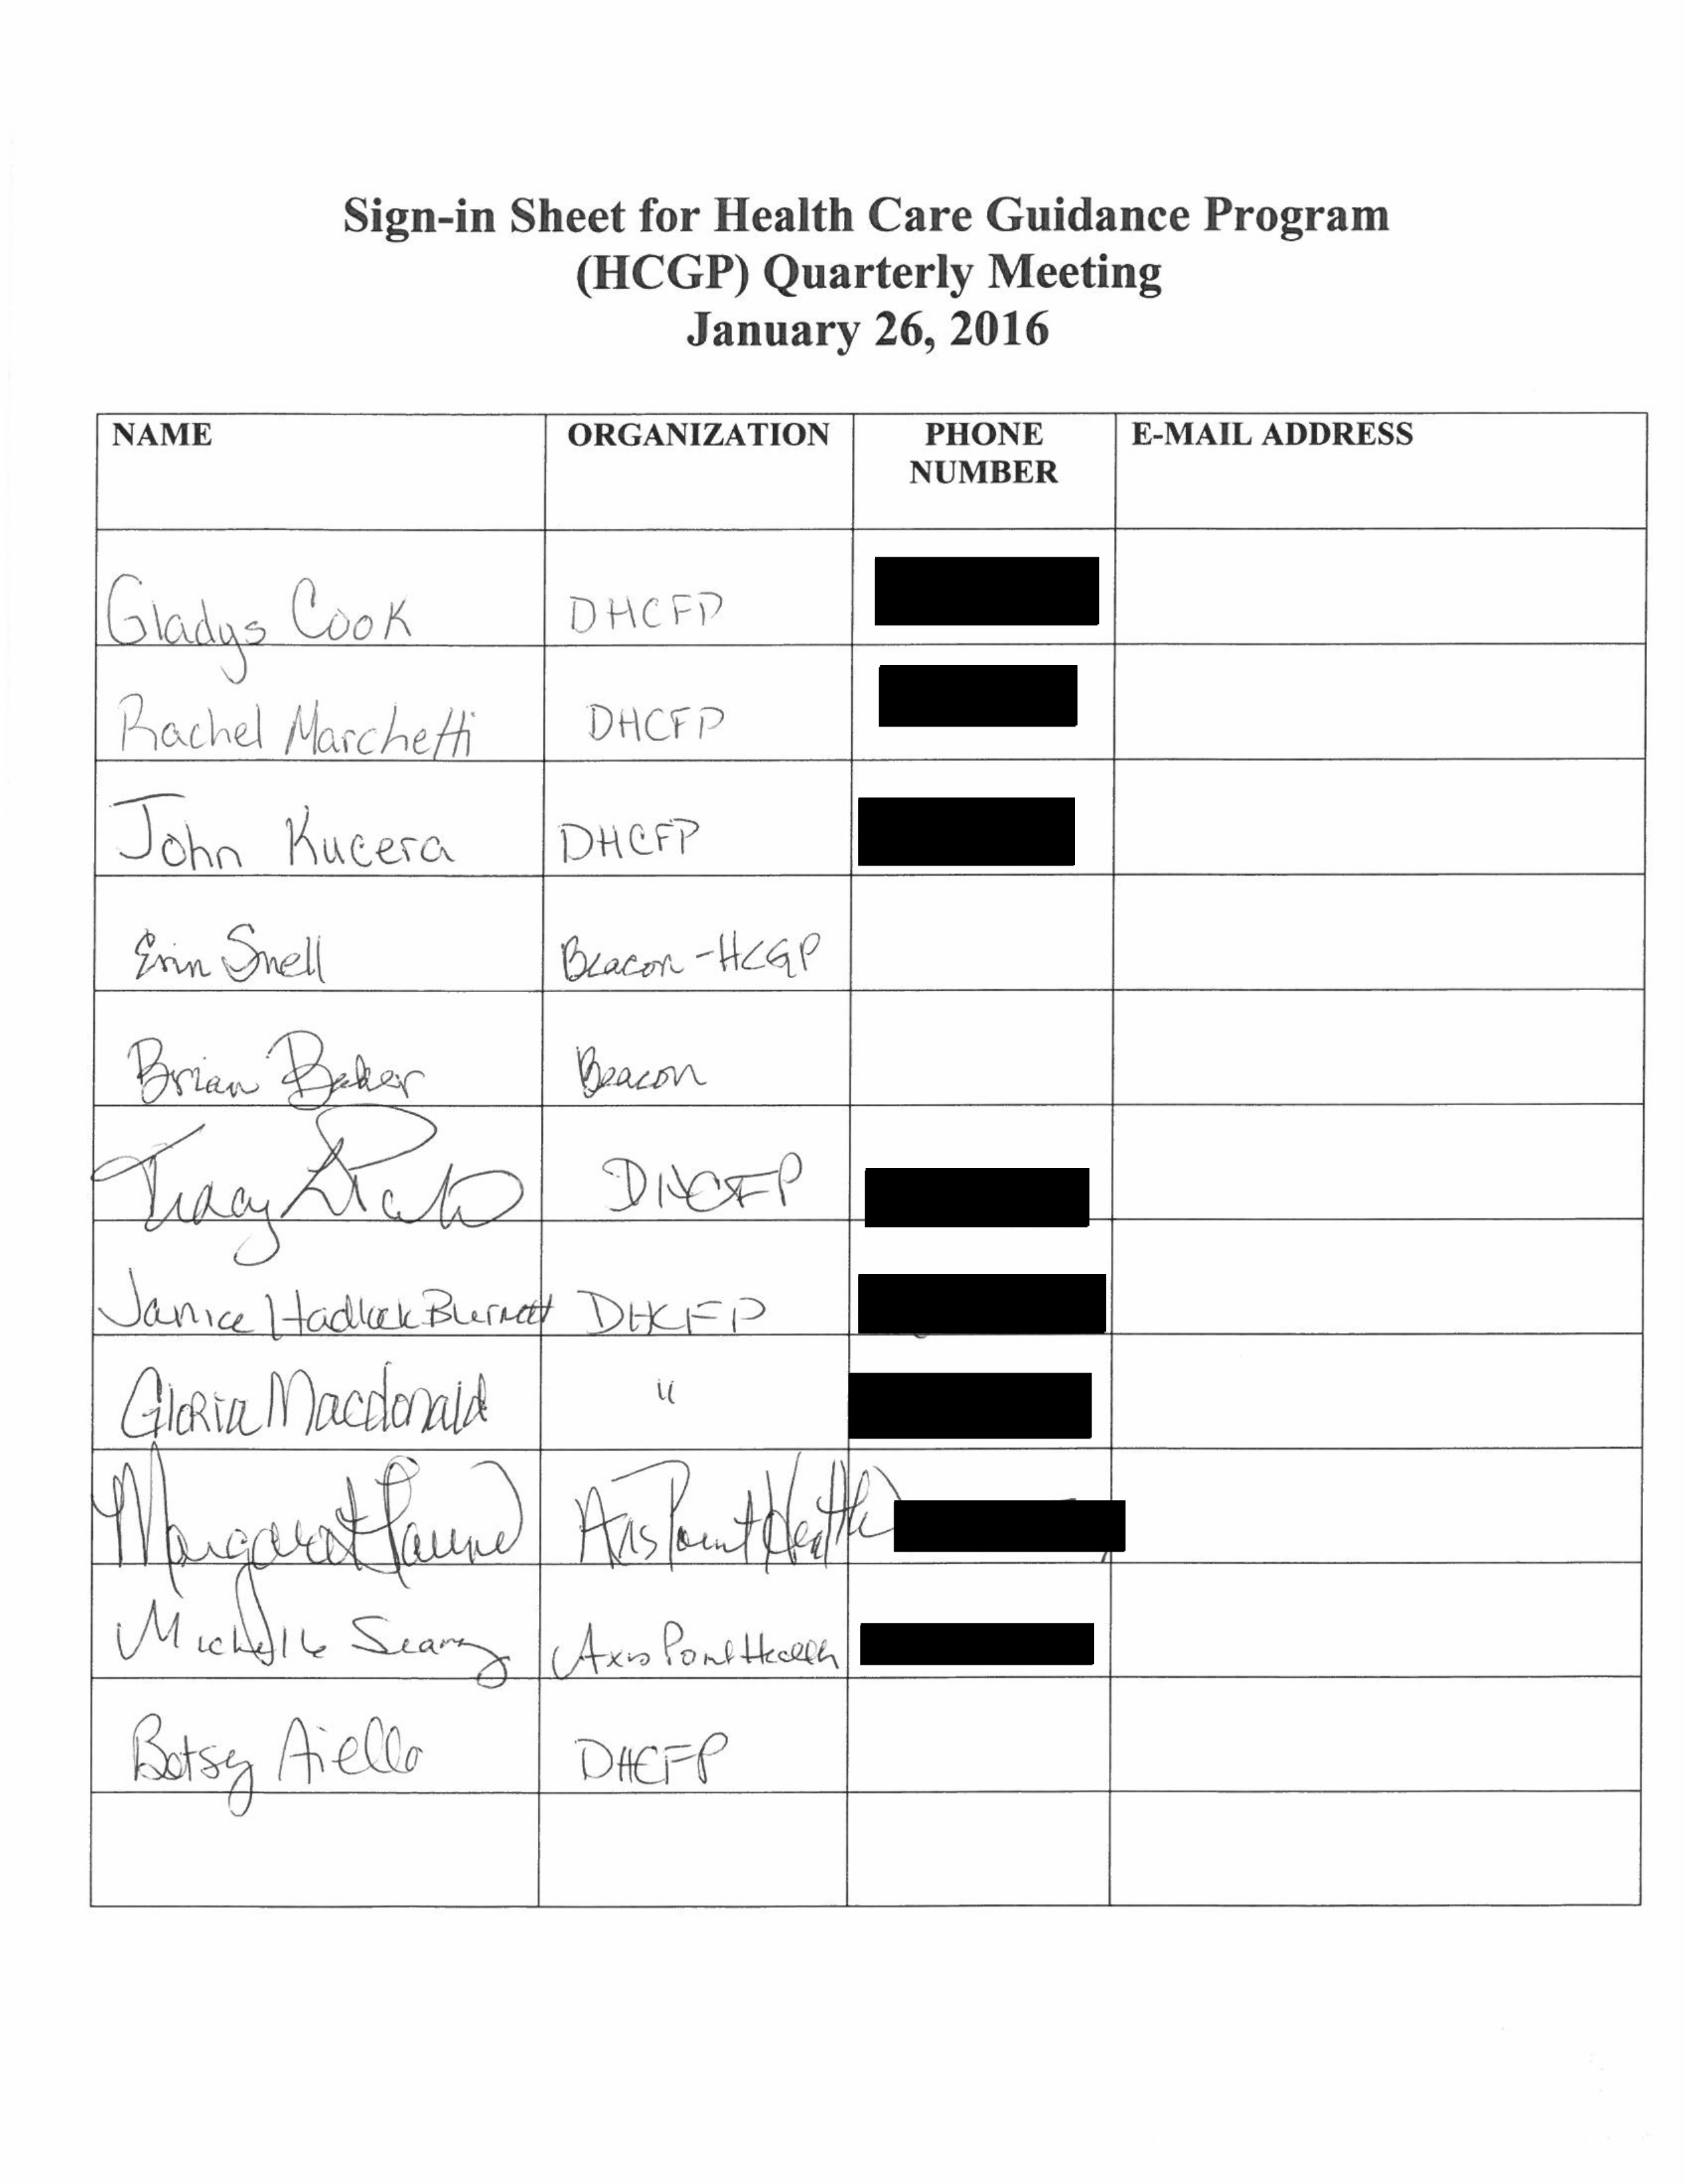 Sign-in Sheet for Health Care Guidance Program
(HCGP) Quarterly Meeting
January 26, 2016
NAME ORGANIZATION PHONE NUMBER E-MAIL ADDRESS
Gladys Cook DHCFP
Rachel Marchetti DHCFP
John Kucera DHCFP
Erin Snell Beacon-HCGP
Brian Baker Beacon
Tracy DHCFP
Janice Hadlock Burnett DHCFP
Gloria Macdonald "
Margaret AxisPoint Health
Michelle Searcy AxisPoint Health
Betsy Aiello DHCFP